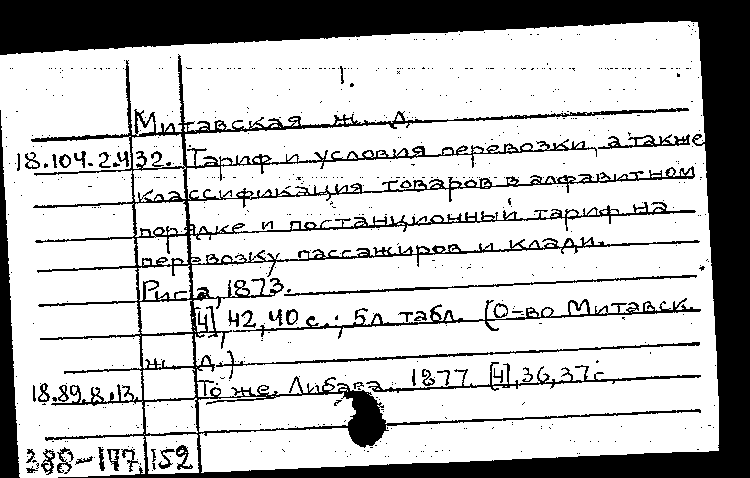 1.
Митавская ж. д.
18.104.2.432. Тариф и условия перевозки, а также
классификация товаров в алфавитном
порядке и постанционный тариф на
перевозку пассажиров и клади.
Рига, 1873.
[4], 42, 40 с.; 5л. табл. (О-во Митавск.
ж. д.).
18.89.8.13. То же. Либава. 1877. [4], 36, 37с.
388-177, 152